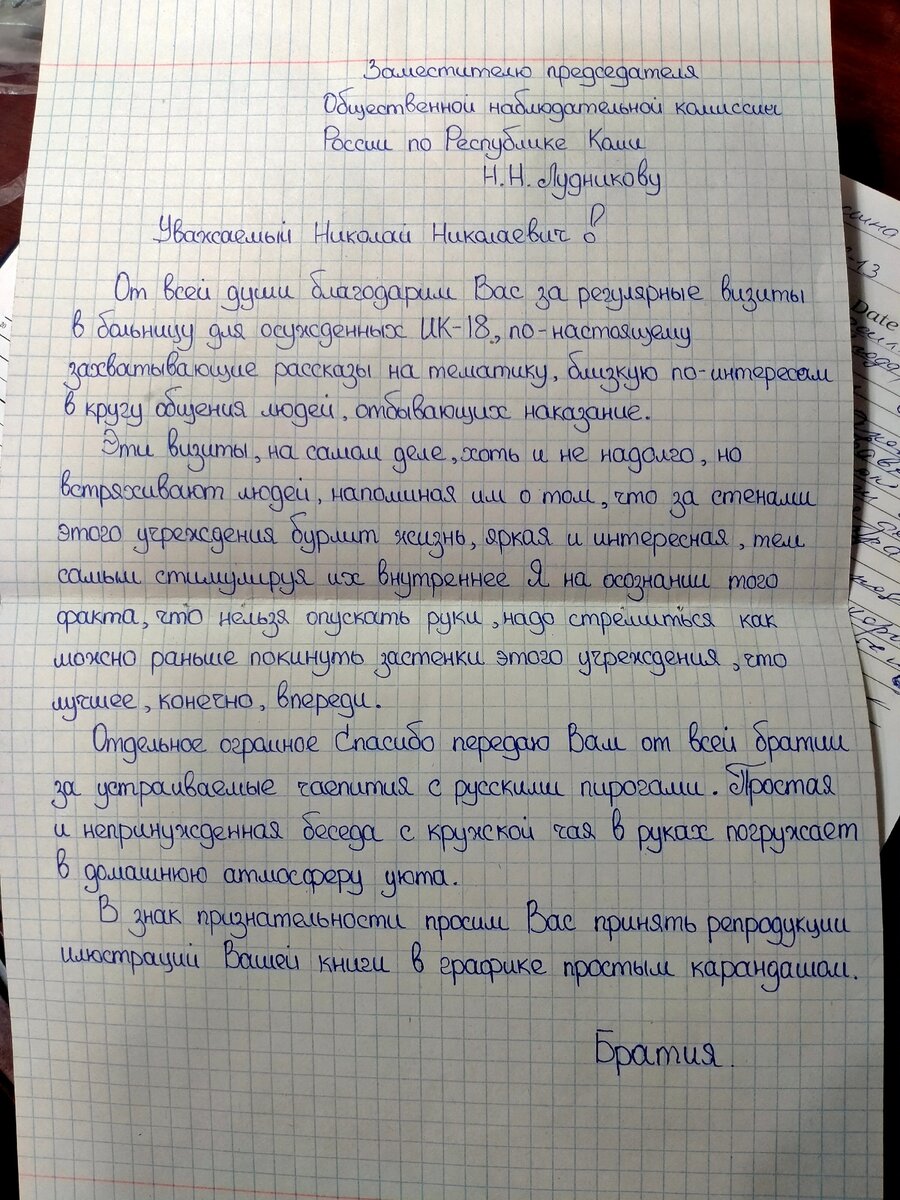 Заместителю председателя
Общественной наблюдательной комиссии
России по Республике Коми
Н.Н. Лудникову
Уважаемый Николай Николаевич!
От всей души благодарим Вас за регулярные визиты
в больницу для осужденных ИК-18, по-настоящему
захватывающие рассказы на тематику, близкую по-интересам
в кругу общения людей, отбывающих наказание.
Эти визиты, на самом деле, хоть и не надолго, но
встряхивают людей, напоминая им о том, что за стенами
этого учреждения бурлит жизнь, яркая и интересная, тем
самым стимулируя их внутреннее Я на осознании того
факта, что нельзя опускать руки, надо стремиться как
можно раньше покинуть застенки этого учреждения, что
лучшее, конечно, впереди.
Отдельное огромное Спасибо передаю Вам от всей братии
за устраиваемые чаепития с русскими пирогами. Простая
и непринужденная беседа с кружкой чая в руках погружает
в домашнюю атмосферу уюта.
В знак признательности просим Вас принять репродукции
илюстраций Вашей книги в графике простым карандашом.
Братия.
13
Date